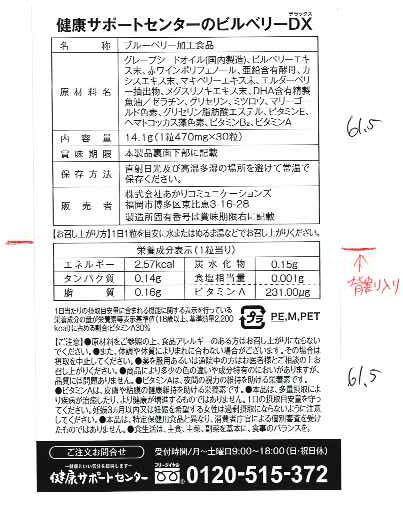 健康サポートセンターのビルベリーDX
デラックス
名称 ブルーベリー加工食品
原材料名 グレープシードオイル(国内製造)、ビルベリーエキス末、赤ワインポリフェノール、亜鉛含有酵母、カシスエキス末、マキベリーエキス末、エルダーベリー抽出物、メグスリノキエキス末、DHA含有精製魚油/ゼラチン、グリセリン、ミツロウ、マリーゴールド色素、グリセリン脂肪酸エステル、ビタミンE、ヘマトコッカス藻色素、ビタミンB₂、ビタミンA
内容量 14.1g(1粒470mg×30粒)
賞味期限 本製品裏面下部に記載
保存方法 直射日光及び高温多湿の場所を避けて常温で保存ください。
販売者 株式会社あかりコミュニケーションズ
福岡市博多区東比恵3-16-28
製造所固有番号は賞味期限右に記載
【お召し上がり方】1日1粒を目安に水またはぬるま湯などでお召し上がりください。
栄養成分表示(1粒当り)
エネルギー 2.57kcal 炭水化物 0.15g
タンパク質 0.14g 食塩相当量 0.001g
脂質 0.16g ビタミンA 231.00μg
1日当たりの摂取目安量に含まれる機能に関する表示を行っている
栄養成分の量が栄養素等表示基準値(18歳以上、基準熱量2,200
kcal)に占める割合:ビタミンA30%
プラ PE,M,PET
【ご注意】●原材料をご参照の上、食品アレルギーのある方はお召し上がりにならない
でください。●また、体調や体質によりまれに合わない場合がございます。その場合は
摂取を中止してください。●薬を服用あるいは通院中の方はお医者様とご相談の上
お召し上がりください。●商品により多少の色の違いや成分特有のにおいがありますが、
品質には問題ありません。●ビタミンAは、夜間の視力の維持を助ける栄養素です。
●ビタミンAは、皮膚や粘膜の健康維持を助ける栄養素です。●本品は、多量摂取によ
り疾病が治癒したり、より健康が増進するものではありません。1日の摂取目安量を守っ
てください。妊娠3ヵ月以内又は妊娠を希望する女性は過剰摂取にならないように注意
してください。●本品は、特定保健用食品と異なり、消費者庁長官による個別審査を受け
たものではありません。●食生活は、主食、主菜、副菜を基本に、食事のバランスを。
ご注文お問合せ 受付時間/月~土曜日9:00~18:00(日・祝日休)
健康サポートセンター フリーダイヤル 0120-515-372
61.5
61.5